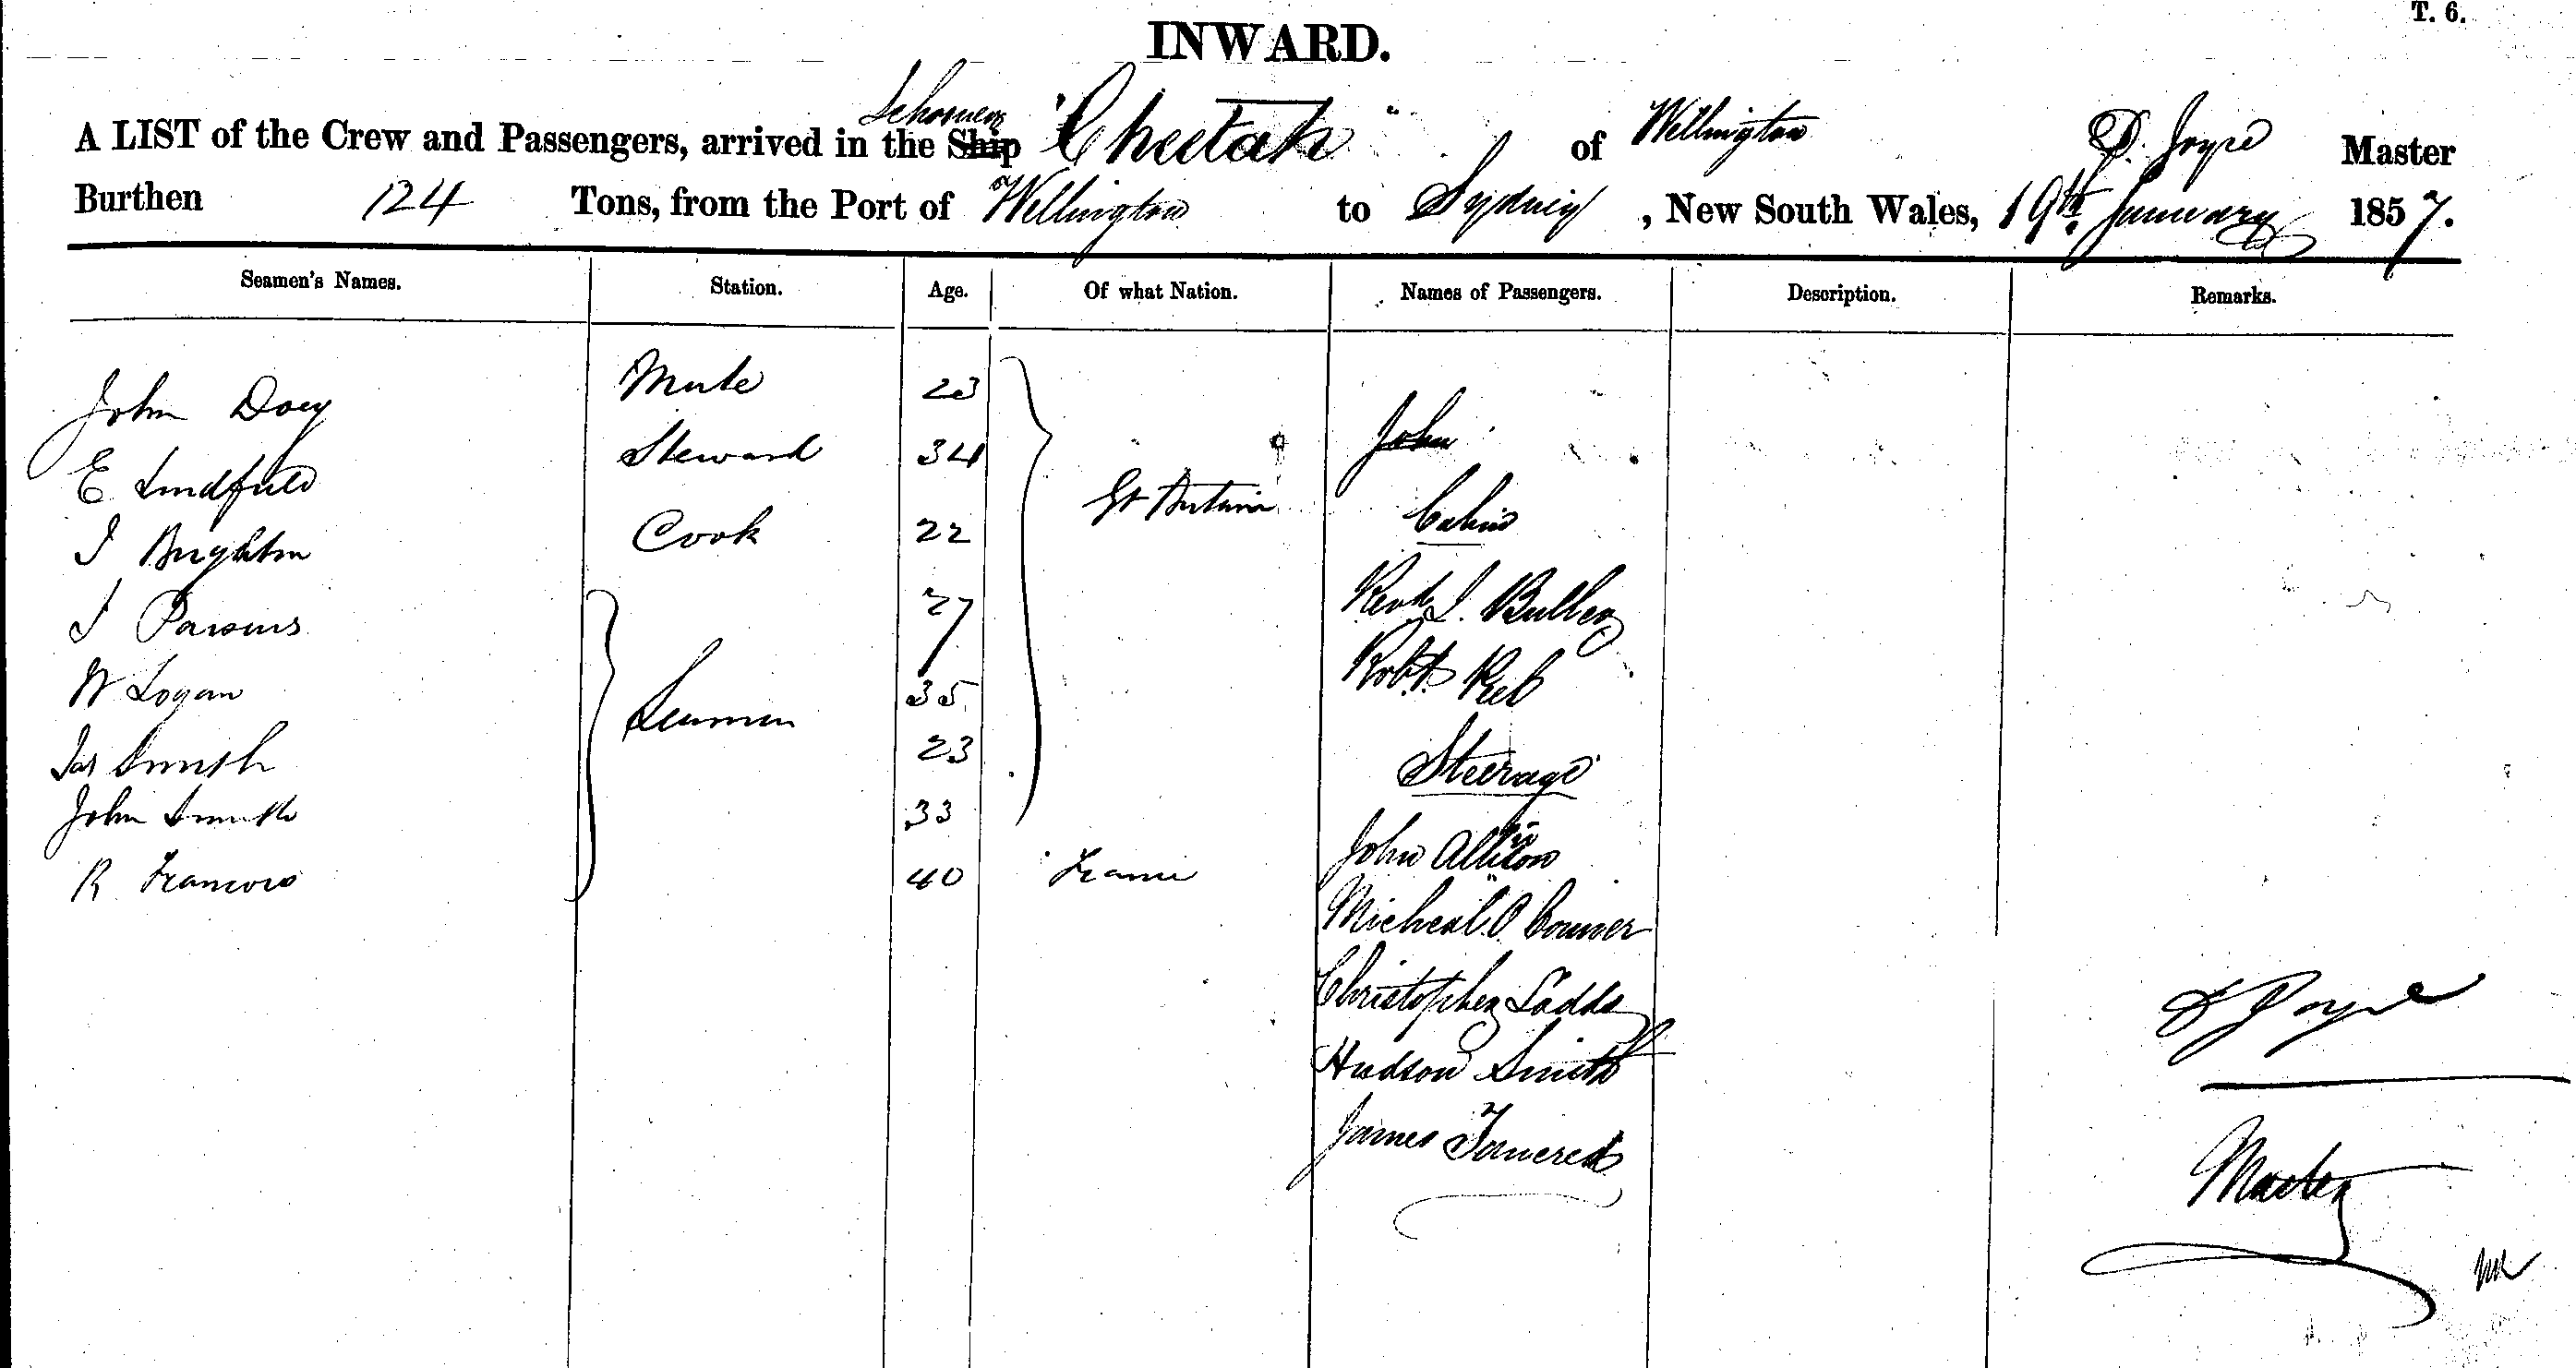 T. 6.
INWARD.
Schooner
A LIST of the Crew and Passengers, arrived in the Ship "Cheetah" of Wellington D. Joyce Master
Burthen 124 Tons, from the Port of Wellington to Sydney, New South Wales, 19th January 1857.
Seamen's Names. Station. Age. Of what Nation. Names of Passengers. Description. Remarks.
John Doey Mate 23 John
E Lindfield Steward 34 Gt Britain Cabin
J Brighton Cook 22 Revd J. Buller
J Parsons 27 Robt.
W Logan Seamen 35 Steerage
Jas Smith 23
John Smith 33 John Allison
R Francois 40 France Micheal O Conner
Christopher Ladds
Hudson Smith
James
D Joyce
Master